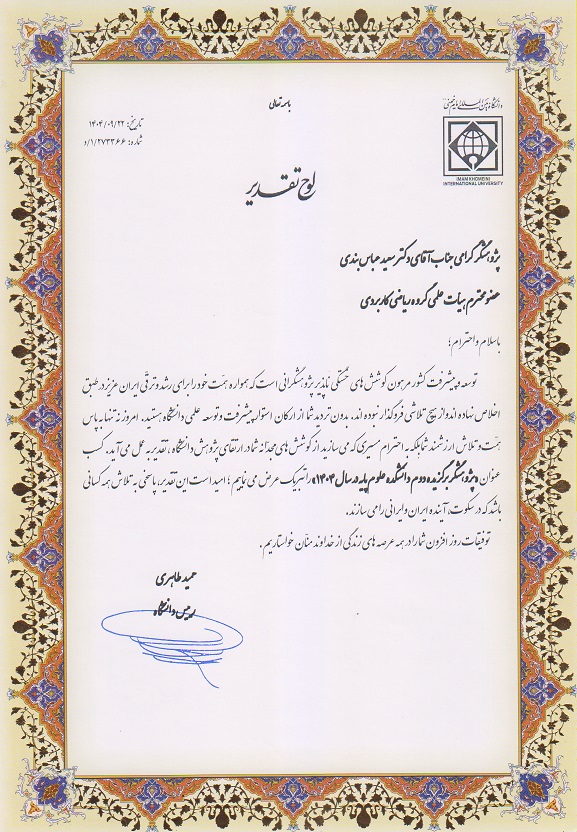 باسمه تعالی
دانشگاه بین المللی امام خمینی
IMAM KHOMEINI
INTERNATIONAL UNIVERSITY
تاریخ: ۱۴۰۴/۰۹/۲۲
شماره: ۱/۲۷۳۳۶۶/د
لوح تقدیر
پژوهشگر گرامی جناب آقای دکتر سعید عباس بندی
عضو محترم هیات علمی گروه ریاضی کاربردی
باسلام و احترام؛
توسعه و پیشرفت کشور مرهون کوشش های خستگی ناپذیر پژوهشگرانی است که همواره همّت خود را برای رشد و ترقّی ایران عزیز در طبق
اخلاص نهاده اند و از هیچ تلاشی فروگذار نبوده اند. بدون تردید شما از ارکان استوار پیشرفت و توسعه علمی دانشگاه هستید. امروز نه تنها به پاس
همّت و تلاش ارزشمند شما بلکه به احترام مسیری که می سازید از کوشش های مجدانه شما در ارتقای پژوهش دانشگاه، تقدیر به عمل می آید. کسب
عنوان «پژوهشگر برگزیده دوم دانشکده علوم پایه در سال ۱۴۰۴» را تبریک عرض می نماییم؛ امید است این تقدیر، پاسخی به تلاش همه کسانی
باشد که در سکوت، آینده ایران و ایرانی را می سازند.
توفیقات روز افزون شما را در همه عرصه های زندگی از خداوند منّان خواستاریم.
حمید طاهری
رییس دانشگاه